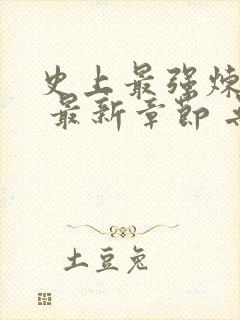 史上最强炼
最新章节
土豆兔